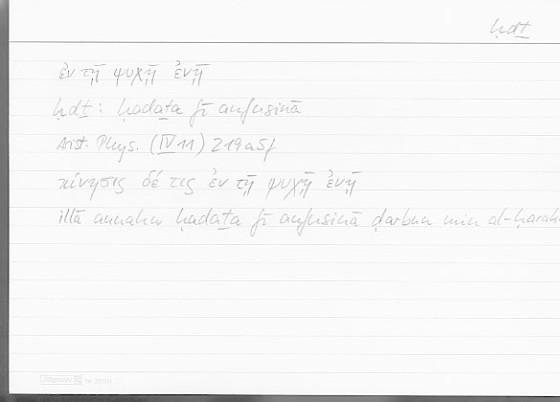 ḥdṯ
ἐν τῇ ψυχῇ ἐνῇ
ḥdṯ : ḥadaṯa fī anfusinā
Arist. Phys. (IV 11) 219a5f
κίνησις δέ τις ἐν τῇ ψυχῇ ἐνῇ
illā annahu ḥadaṯa fī anfusinā ḍarbun min al-ḥarak